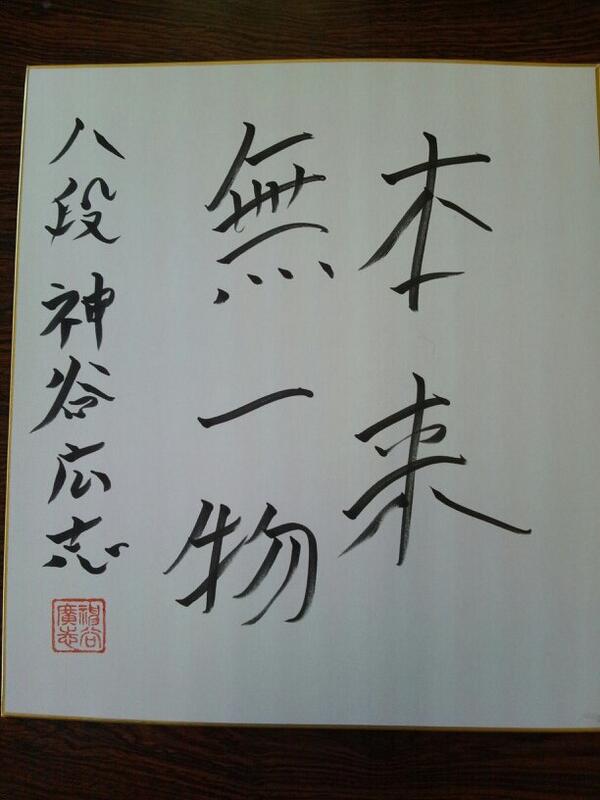 本来
無一物
八段 神谷広志
神谷
廣志